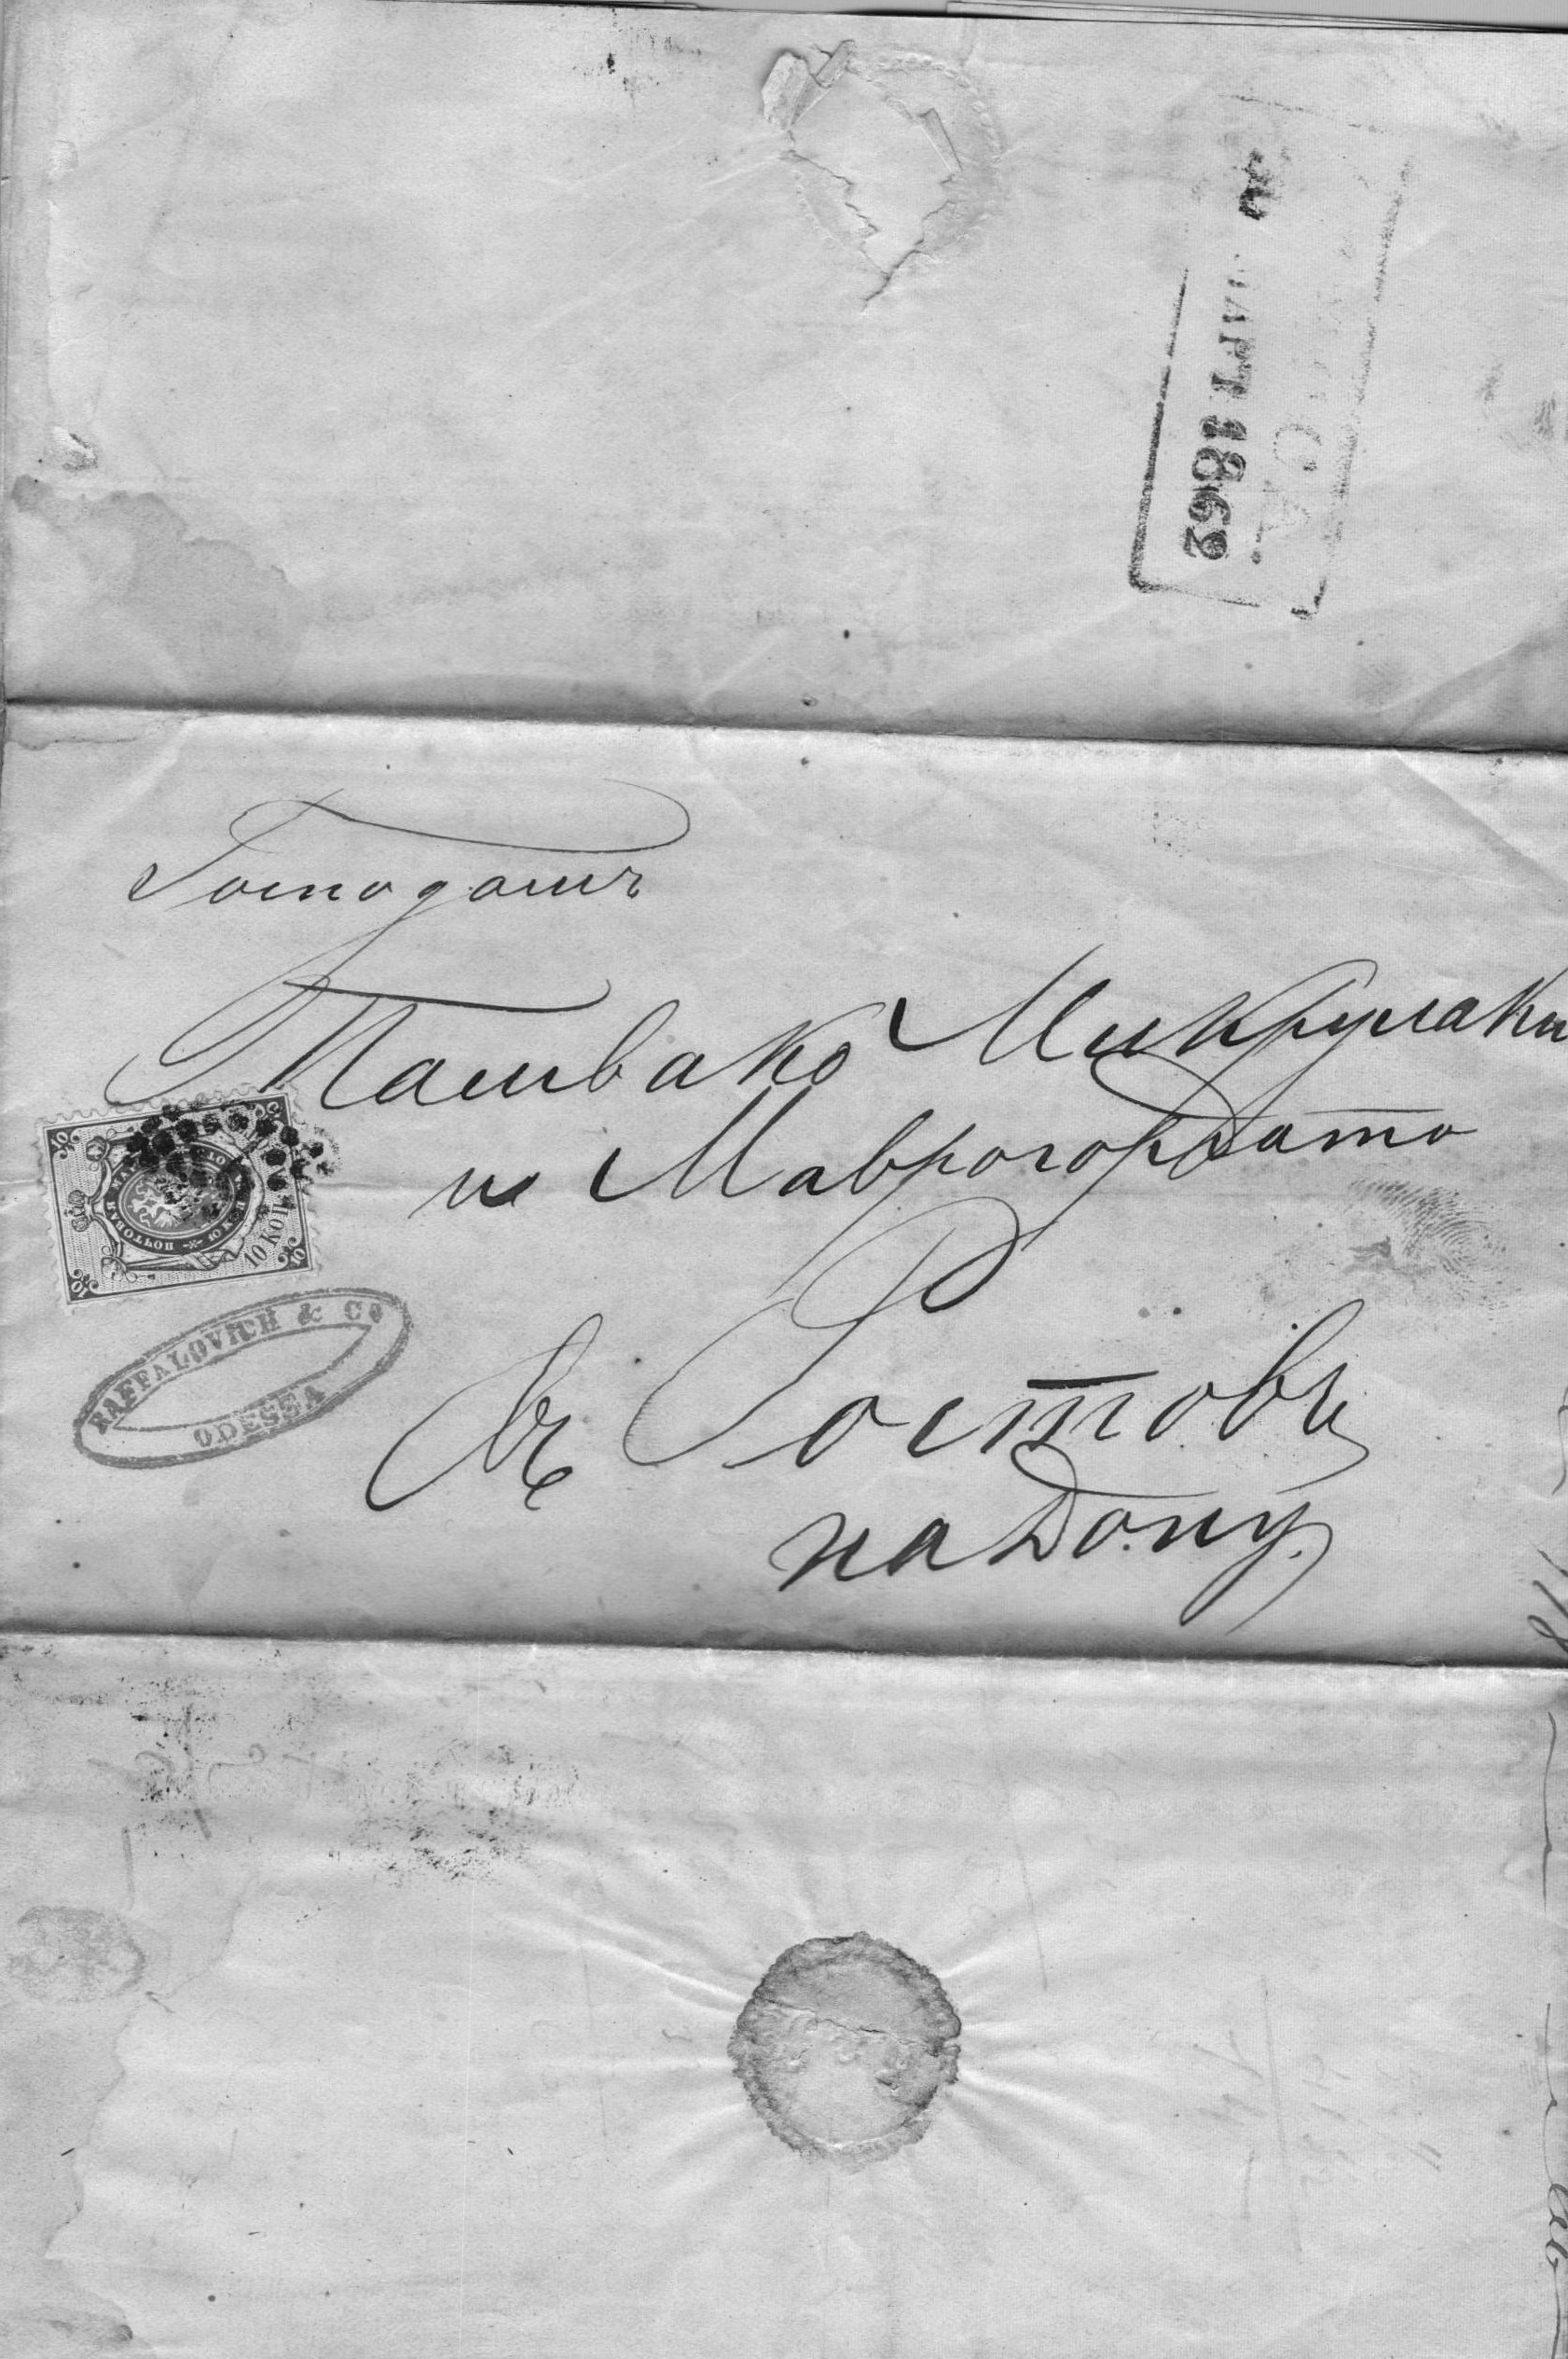 МАРТ 1862
Господамъ
Ташвако Микрулаки
и Маврогордато
въ Ростовъ
на Дону.
10 КОП.
RAFFALOVICH & CO
ODESSA